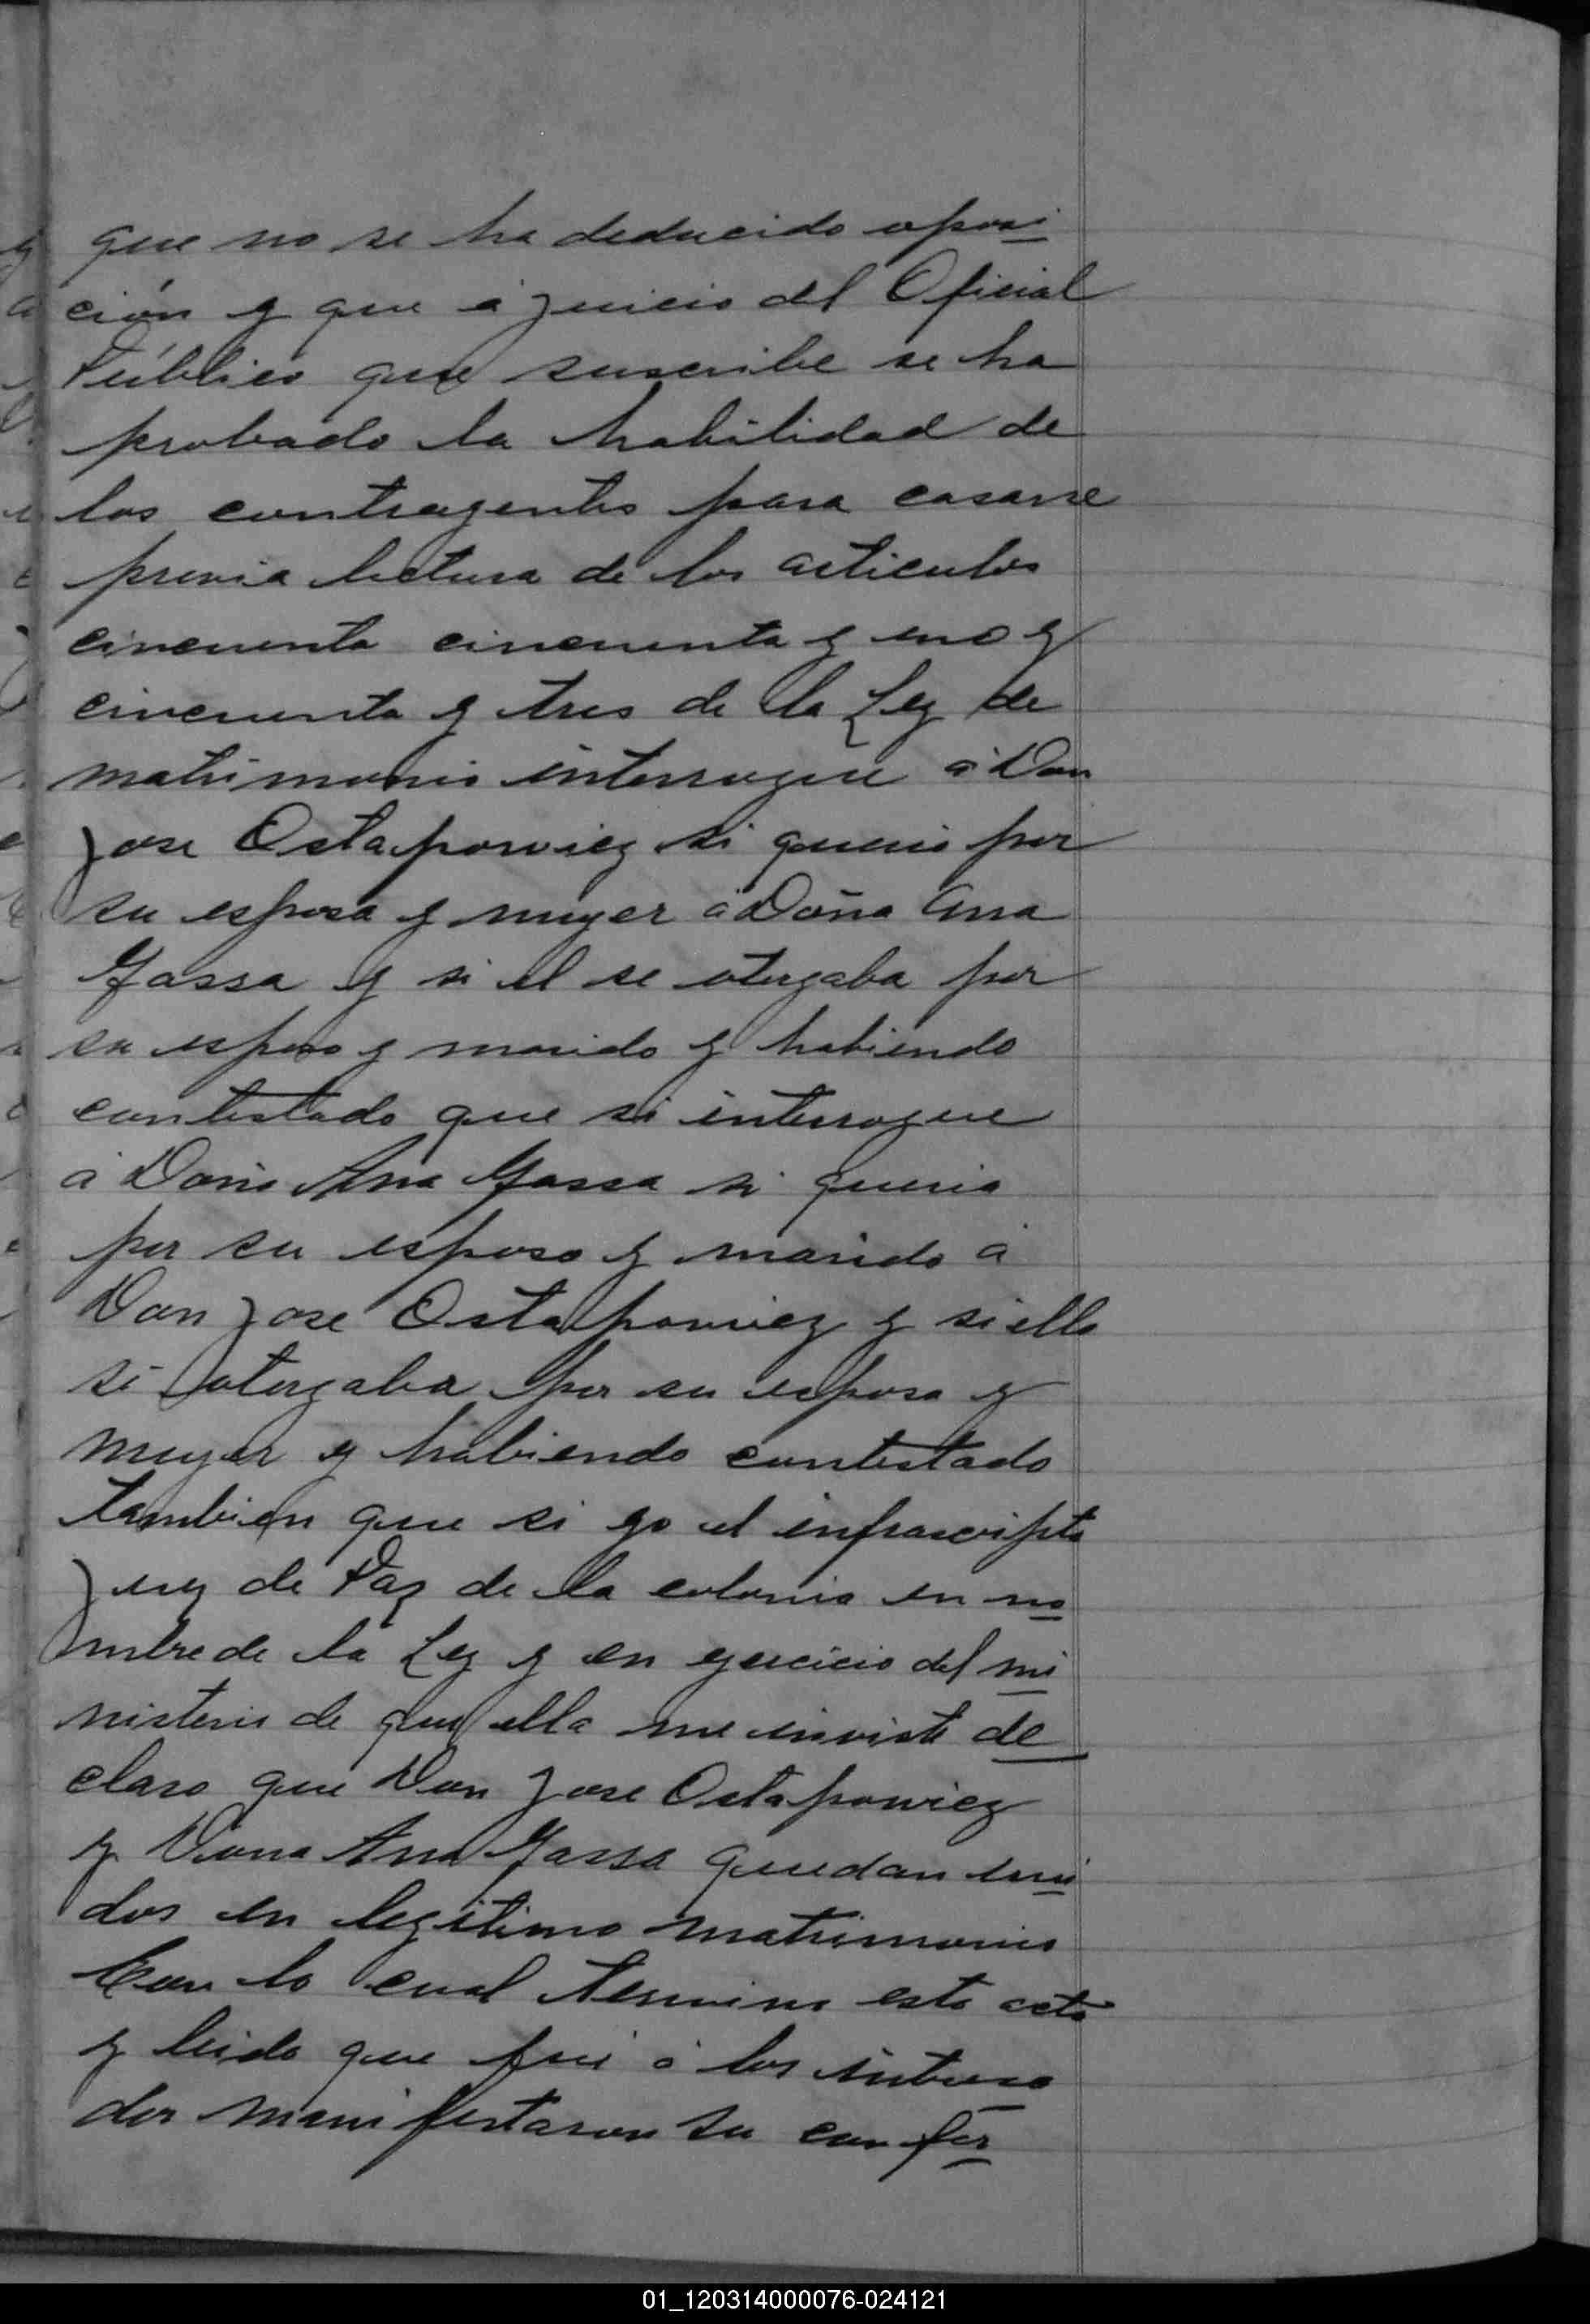 que no se ha deducido oposi
ción y que á juicio del Oficial
Público que suscribe se ha
probado la habilidad de
los contragentes para casarse
previa lectura de los articulos
cincuenta cincuenta y uno y
cincuenta y tres de la Ley de
matrimonio interrogue á Don
Jose Ostapowiez si queria por
su esposa y muger á Doña Ana
Gassa y si el se otorgaba por
su esposo y marido y habiendo
contestado que si interrogue
á Doña Ana Gassa si queria
por su esposo y marido á
Don Jose Ostapowiez y si ella
si otorgaba por su esposa y
muger y habiendo contestado
tambien que si yo el infrascripto
Juez de Paz de la colonia en no
mbre de la Ley y en ejercicio del mi
nisterio de que ella me inviste de
claro que Don Jose Ostapowiez
y Dona Ana Gassa quedan uni
dos en legitimo matrimonio
Con lo cual termino este acto
y leido que fué á los interesa
dos manifestaron su confor
01_120314000076-024121